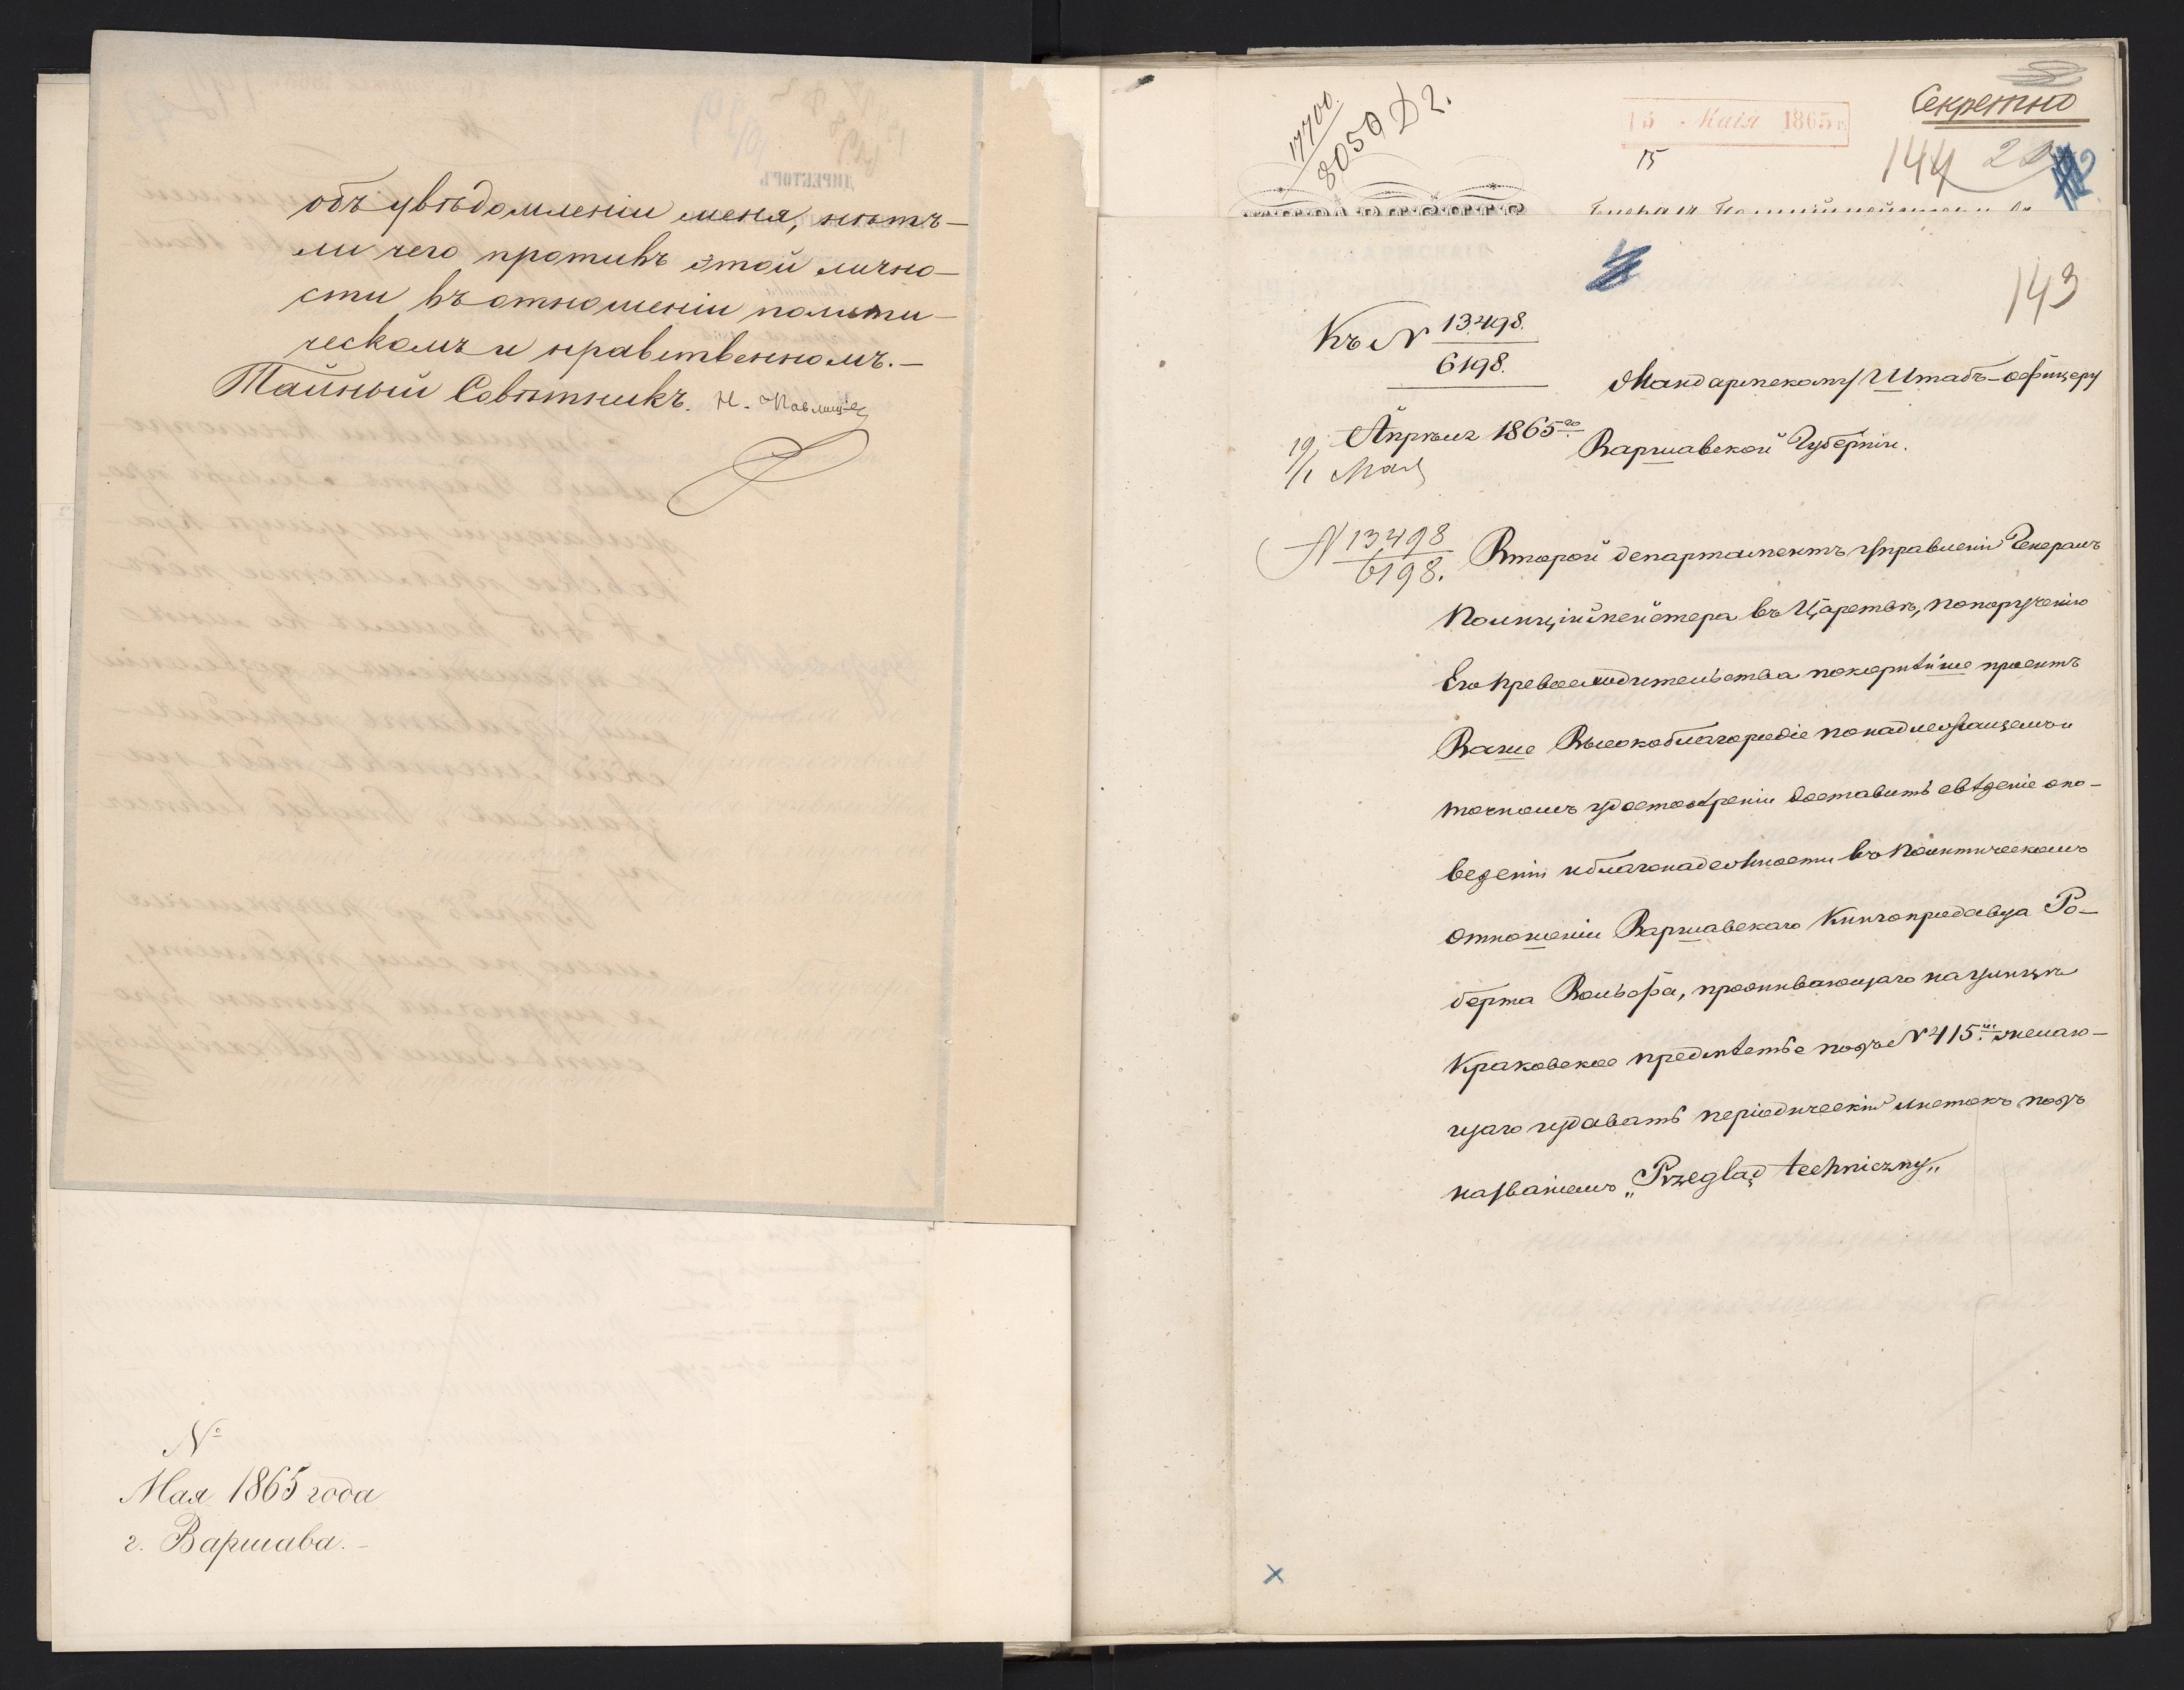 объ увѣдомленіи меня, нѣтъ-
ли чего противъ этой лично-
сти въ отношеніи полити-
ческомъ и нравственномъ.-
Тайный Совѣтникъ. Н. Павлищев
№
Мая 1865 года
г. Варшава.-
17700
8059 Д 2.
15 Маія 1865 г.
15
Секретно
144
143
Къ № 13498.
6198.
Жандармскому Штабъ-офицеру
Варшавской Губерніи.
19/1 Апрѣля 1865го
Мая
№ 13498
6198.
Второй департаментъ управленія Генералъ
Полиціймейстера въ Царствѣ, по порученію
Его Превосходительства покорнѣйше проситъ
Ваше Высокоблагородіе по надлежащемъ и
точномъ удостовѣреніи доставить свѣдѣніе о по-
веденіи и благонадежности въ Политическомъ
отношеніи Варшавскаго Книгопродавца Ро-
берта Вольфа, проживающаго на улицѣ
Краковское предмѣстье подъ № 415м желаю-
щаго издавать періодическій листокъ подъ
названіемъ „Przegląd techniczny„